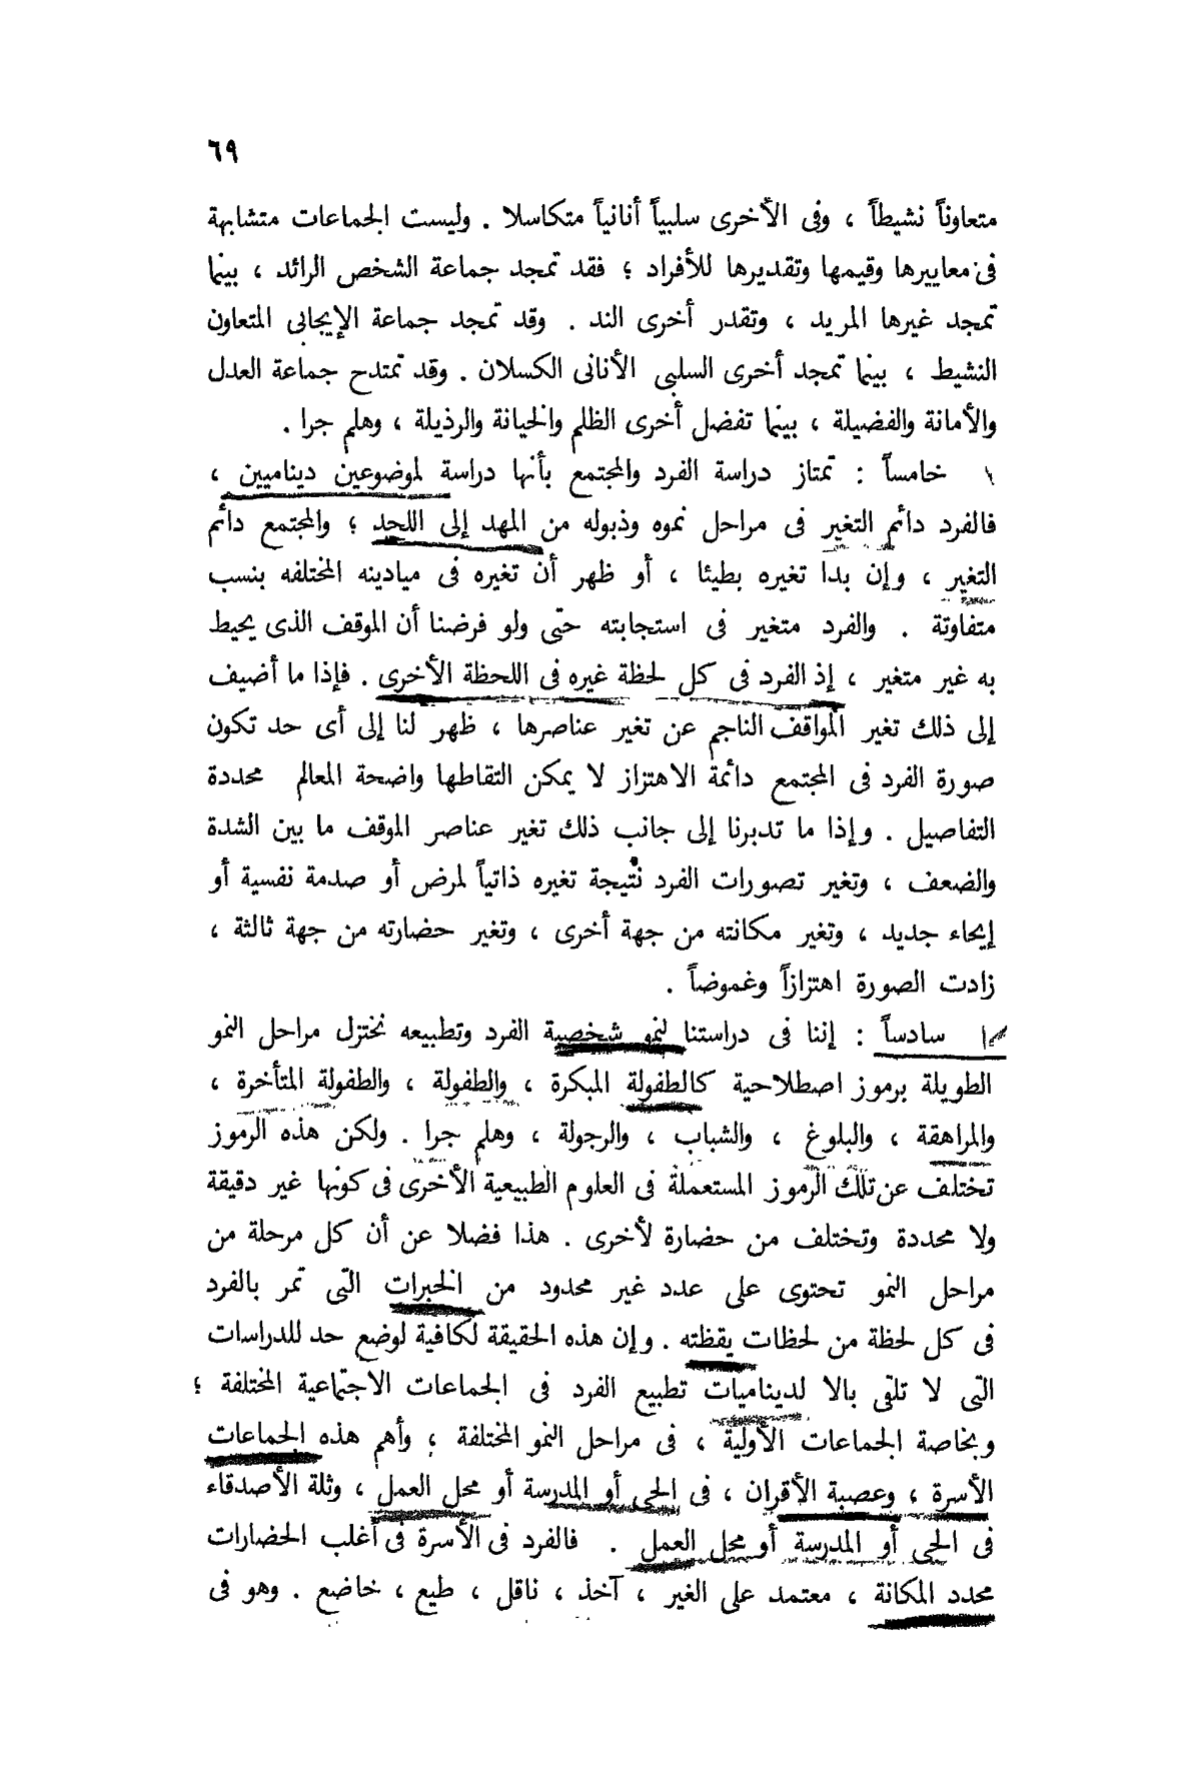 ٦٩
متعاوناً نشيطاً ، وفى الأخرى سلبياً أنانياً متكاسلا . وليست الجماعات متشابهة
فى معاييرها وقيمها وتقديرها للأفراد ؛ فقد تمجد جماعة الشخص الرائد ، بينما
تمجد غيرها المريد ، وتقدر أخرى الند . وقد تمجد جماعة الإيجابى المتعاون
النشيط ، بينما تمجد أخرى السلبى الأنانى الكسلان . وقد تمتدح جماعة العدل
والأمانة والفضيلة ، بينما تفضل أخرى الظلم والخيانة والرذيلة ، وهلم جرا .
خامساً : تمتاز دراسة الفرد والمجتمع بأنها دراسة لموضوعين ديناميين ،
فالفرد دائم التغير فى مراحل نموه وذبوله من المهد إلى اللحد ؛ والمجتمع دائم
التغير ، وإن بدا تغيره بطيئا ، أو ظهر أن تغيره فى ميادينه المختلفه بنسب
متفاوتة . والفرد متغير فى استجابته حتى ولو فرضنا أن الموقف الذى يحيط
به غير متغير ، إذ الفرد فى كل لحظة غيره فى اللحظة الأخرى . فإذا ما أضيف
إلى ذلك تغير المواقف الناجم عن تغير عناصرها ، ظهر لنا إلى أى حد تكون
صورة الفرد فى المجتمع دائمة الاهتزاز لا يمكن التقاطها واضحة المعالم محددة
التفاصيل . وإذا ما تدبرنا إلى جانب ذلك تغير عناصر الموقف ما بين الشدة
والضعف ، وتغير تصورات الفرد نتيجة تغيره ذاتياً لمرض أو صدمة نفسية أو
إيحاء جديد ، وتغير مكانته من جهة أخرى ، وتغير حضارته من جهة ثالثة ،
زادت الصورة اهتزازاً وغموضاً .
سادساً : إننا فى دراستنا لنمو شخصية الفرد وتطبيعه نختزل مراحل النمو
الطويلة برموز اصطلاحية كالطفولة المبكرة ، والطفولة ، والطفولة المتأخرة ،
والمراهقة ، والبلوغ ، والشباب ، والرجولة ، وهلم جرا . ولكن هذه الرموز
تختلف عن تلك الرموز المستعملة فى العلوم الطبيعية الأخرى فى كونها غير دقيقة
ولا محددة وتختلف من حضارة لأخرى . هذا فضلا عن أن كل مرحلة من
مراحل النمو تحتوى على عدد غير محدود من الخبرات التى تمر بالفرد
فى كل لحظة من لحظات يقظته . وإن هذه الحقيقة لكافية لوضع حد للدراسات
التى لا تلقى بالا لديناميات تطبيع الفرد فى الجماعات الاجتماعية المختلفة ؛
وبخاصة الجماعات الأولية ، فى مراحل النمو المختلفة ؛ وأهم هذه الجماعات
الأسرة ، وعصبة الأقران ، فى الحى أو المدرسة أو محل العمل ، وثلة الأصدقاء
فى الحى أو المدرسة أو محل العمل . فالفرد فى الأسرة فى أغلب الحضارات
محدد المكانة ، معتمد على الغير ، آخذ ، ناقل ، طيع ، خاضع . وهو فى